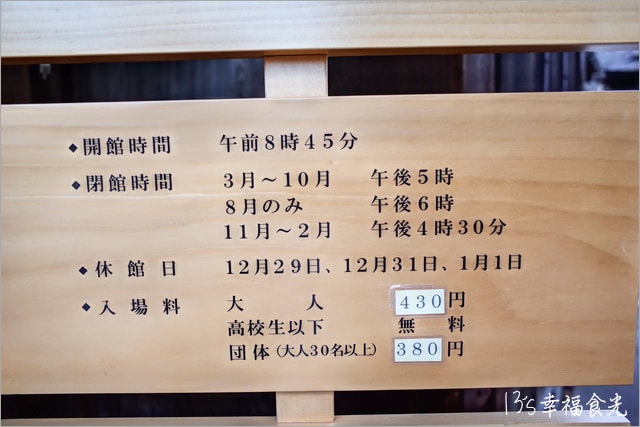 ◆開館時間 午前8時45分
◆閉館時間 3月～10月 午後5時
8月のみ 午後6時
11月～2月 午後4時30分
◆休館日 12月29日、12月31日、1月1日
◆入場料 大人 430円
高校生以下 無料
団体(大人30名以上) 380円
13's幸福食光